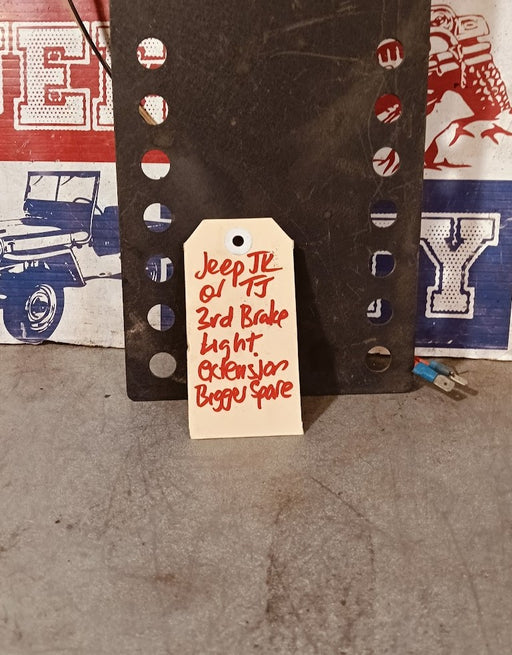 Jeep JK
or TJ
3rd Brake
Light
extension
Bigger Spare